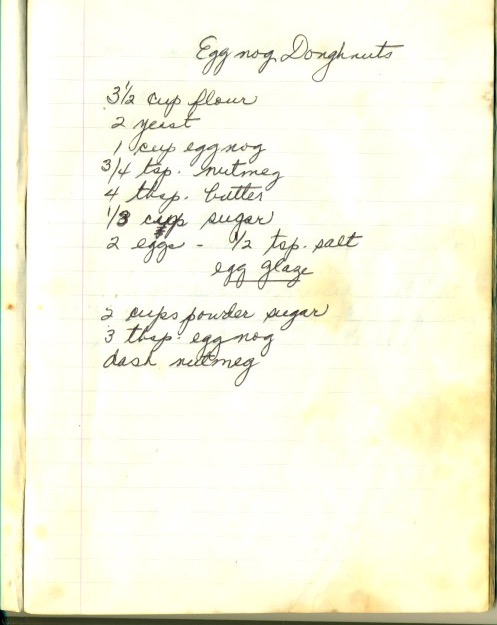 Egg nog Doughnuts
3 1/2 cup flour
2 yeast
1 cup eggnog
3/4 tsp. nutmeg
4 tbsp. butter
1/3 cup sugar
2 eggs - 1/2 tsp. salt
egg glaze
2 cups powder sugar
3 tbsp. eggnog
dash nutmeg